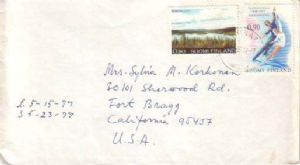 0.90 SUOMI FINLAND
0,90
SUOMI FINLAND
Mrs. Sylvia M. Korhonen
30101 Sherwood Rd.
Fort Bragg
California 95437
U.S.A.
5-15-77
S 5-23-77